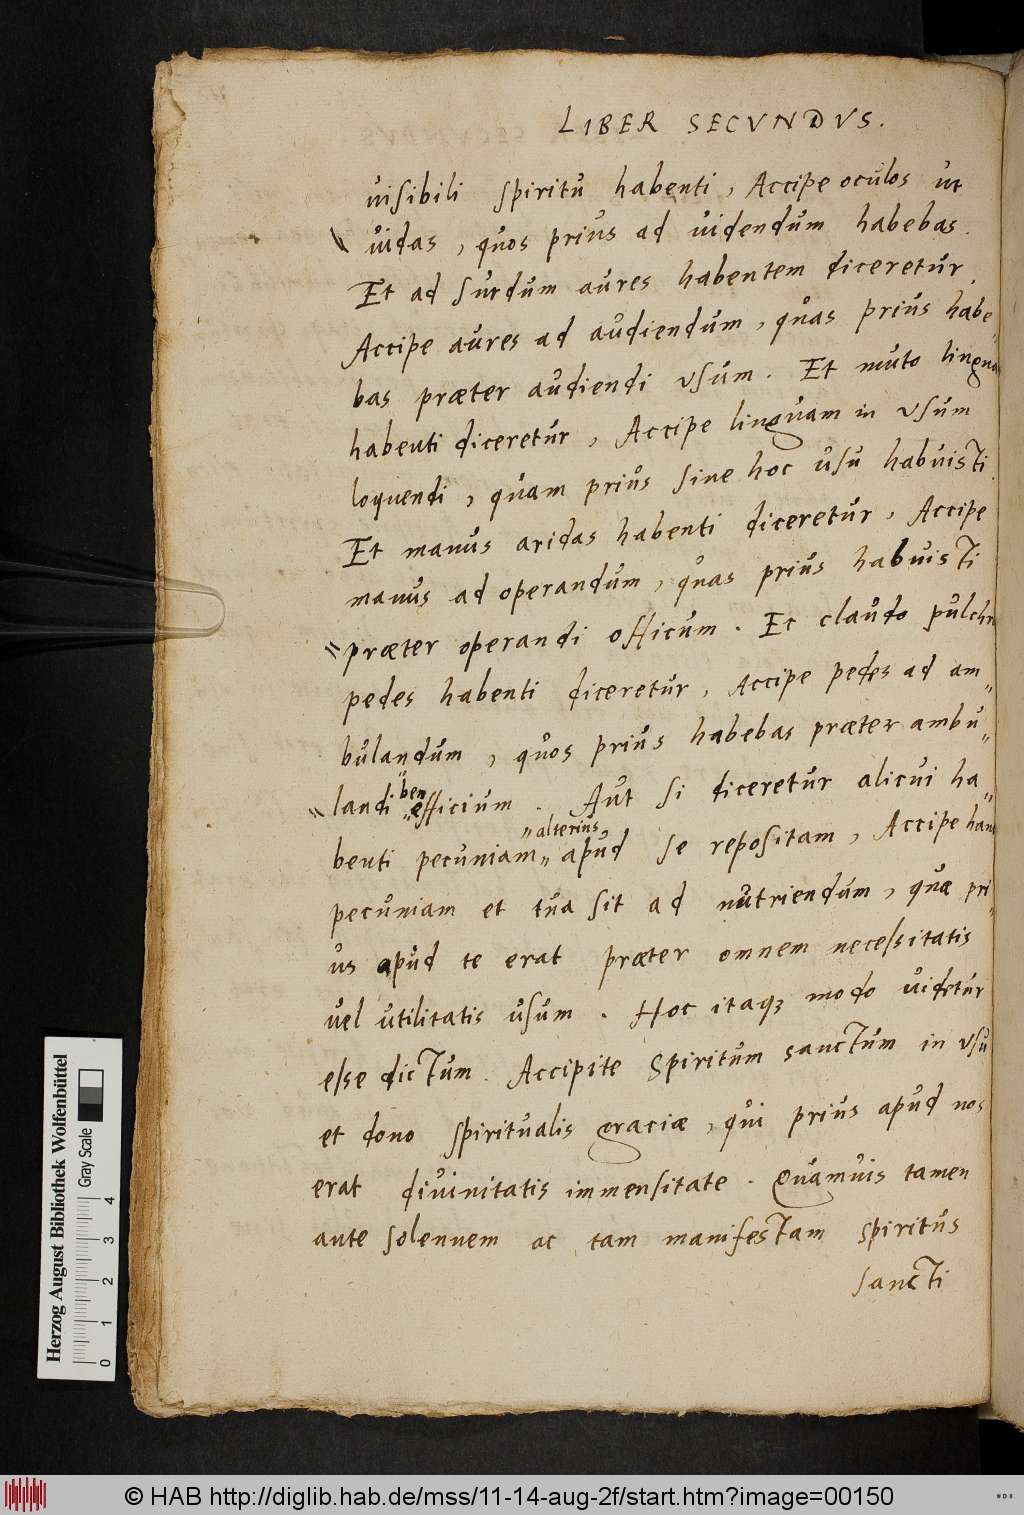 LIBER SECVNDVS.
uisibili spiritu habenti, Accipe oculos ut
uidas, quos prius ad uidendum habebas.
Et ad surdum aures habentem diceretur,
Accipe aures ad audiendum, quas prius habe„
bas præter audiendi usum. Et muto lingua
habenti diceretur, Accipe linguam in usum
loquendi, quam prius sine hoc usu habuisti.
Et manus aridas habenti diceretur, Accipe
manus ad operandum, quas prius habuisti
præter operandi officum. Et claudo pulchr
pedes habenti diceretur, Accipe pedes ad am„
bulandum, quos prius habebas præter ambu„
landi „efficium. Aut si diceretur alicui ha„
„ben
„alterius
benti pecuniam„ apud se repositam, Accipe hanc
pecuniam et tua sit ad nutriendum, quæ pri„
us apud te erat præter omnem necessitatis
uel utilitatis usum. Hoc itaqꝫ modo uidetur
esse dictum. Accipite Spiritum sanctum in usu
et dono spiritualis graciæ, qui prius apud nos
erat diuinitatis immensitate. Quamuis tamen
ante solennem ac tam manifestam spiritus
sancti
Herzog August Bibliothek Wolfenbüttel
Gray Scale
0 1 2 3 4
© HAB http://diglib.hab.de/mss/11-14-aug-2f/start.htm?image=00150